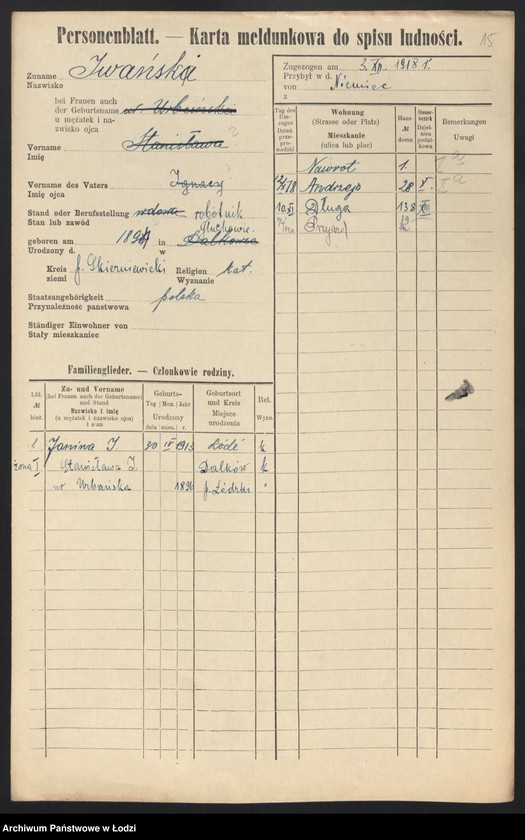 Personenblatt. — Karta meldunkowa do spisu ludności.
15
Zuname Iwańska
Nazwisko
bei Frauen auch
der Geburtsname ur. Urbańska
u mężatek i na-
zwisko ojca
Vorname Stanisława
Imię
Vorname des Vaters Ignacy
Imię ojca
Stand oder Berufsstellung wdowa robotnik
Stan lub zawód
geboren am 1894 in Dalkowie
Urodzony d. w
Kreis p. Skierniewicki Religion kat.
ziemi Wyznanie
Staatsangehörigkeit polska
Przynależność państwowa
Ständiger Einwohner von
Stały mieszkaniec
Familienglieder. — Członkowie rodziny.
Lfd. № bież.
Zu- und Vorname
(bei Frauen auch der Geburtsname)
und Stand
Nazwisko i imię
(u mężatek i nazwisko ojca)
i stan
Geburts-
Tag | Mon. | Jahr
Urodzony
dnia | mies. | r.
Geburtsort
und Kreis
Miejsce
urodzenia
Rel.
Wyzn.
1. Janina I. 20 IV 1913 Łódź k
żona I Stanisława I. Dalków k
ur Urbańska 1896 p. Łódzki "
Zugezogen am 3. XII. 1918 r.
Przybył w d.
von Niemiec
z
Tag des Um-zuges
Dzień prze-prowadzki
Wohnung
(Strasse oder Platz)
Mieszkanie
(ulica lub plac)
Haus-
№
domu
Steuer-bezirk
Dziel-nica podat-kowa
Bemerkungen
Uwagi
Nawrot 1.
Andrzeja 28 X.
10 XI Długa 138
Archiwum Państwowe w Łodzi